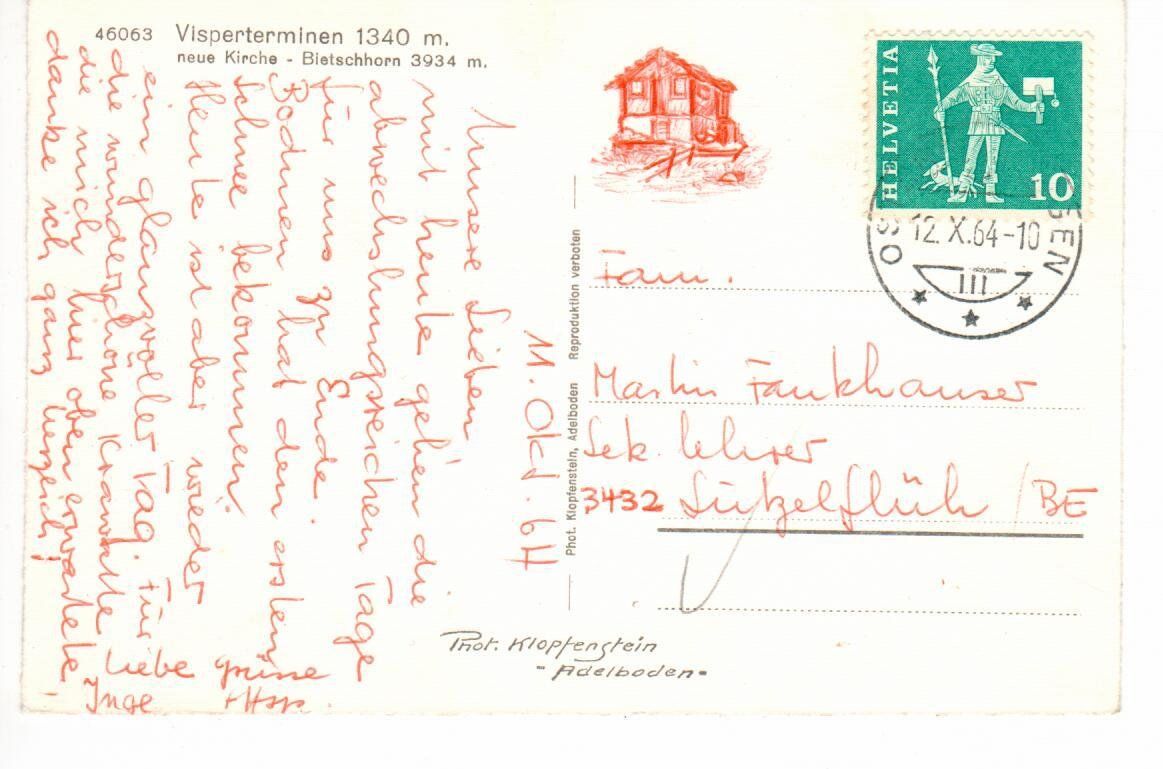 46063 Visperterminen 1340 m.
neue Kirche - Bietschhorn 3934 m.
11. Okt. 64
Unsere Lieben
mit heute gehen die
abwechslungsreichen Tage
für uns zu Ende.
Bodmen hat den ersten
Schnee bekommen.
Heute ist aber wieder
ein glanzvoller Tag. Für
die wunderschöne Krawatte
die mich hier oben erwartete
danke ich ganz herzlich!
Liebe Grüsse
Inge + Hsp.
Phot. Klopfenstein, Adelboden Reproduktion verboten
Phot. Klopfenstein
- Adelboden -
HELVETIA
10
12.X.64-10
III
Fam.
Martin Fankhauser
Sek. lehrer
3432 Lützelflüh / BE